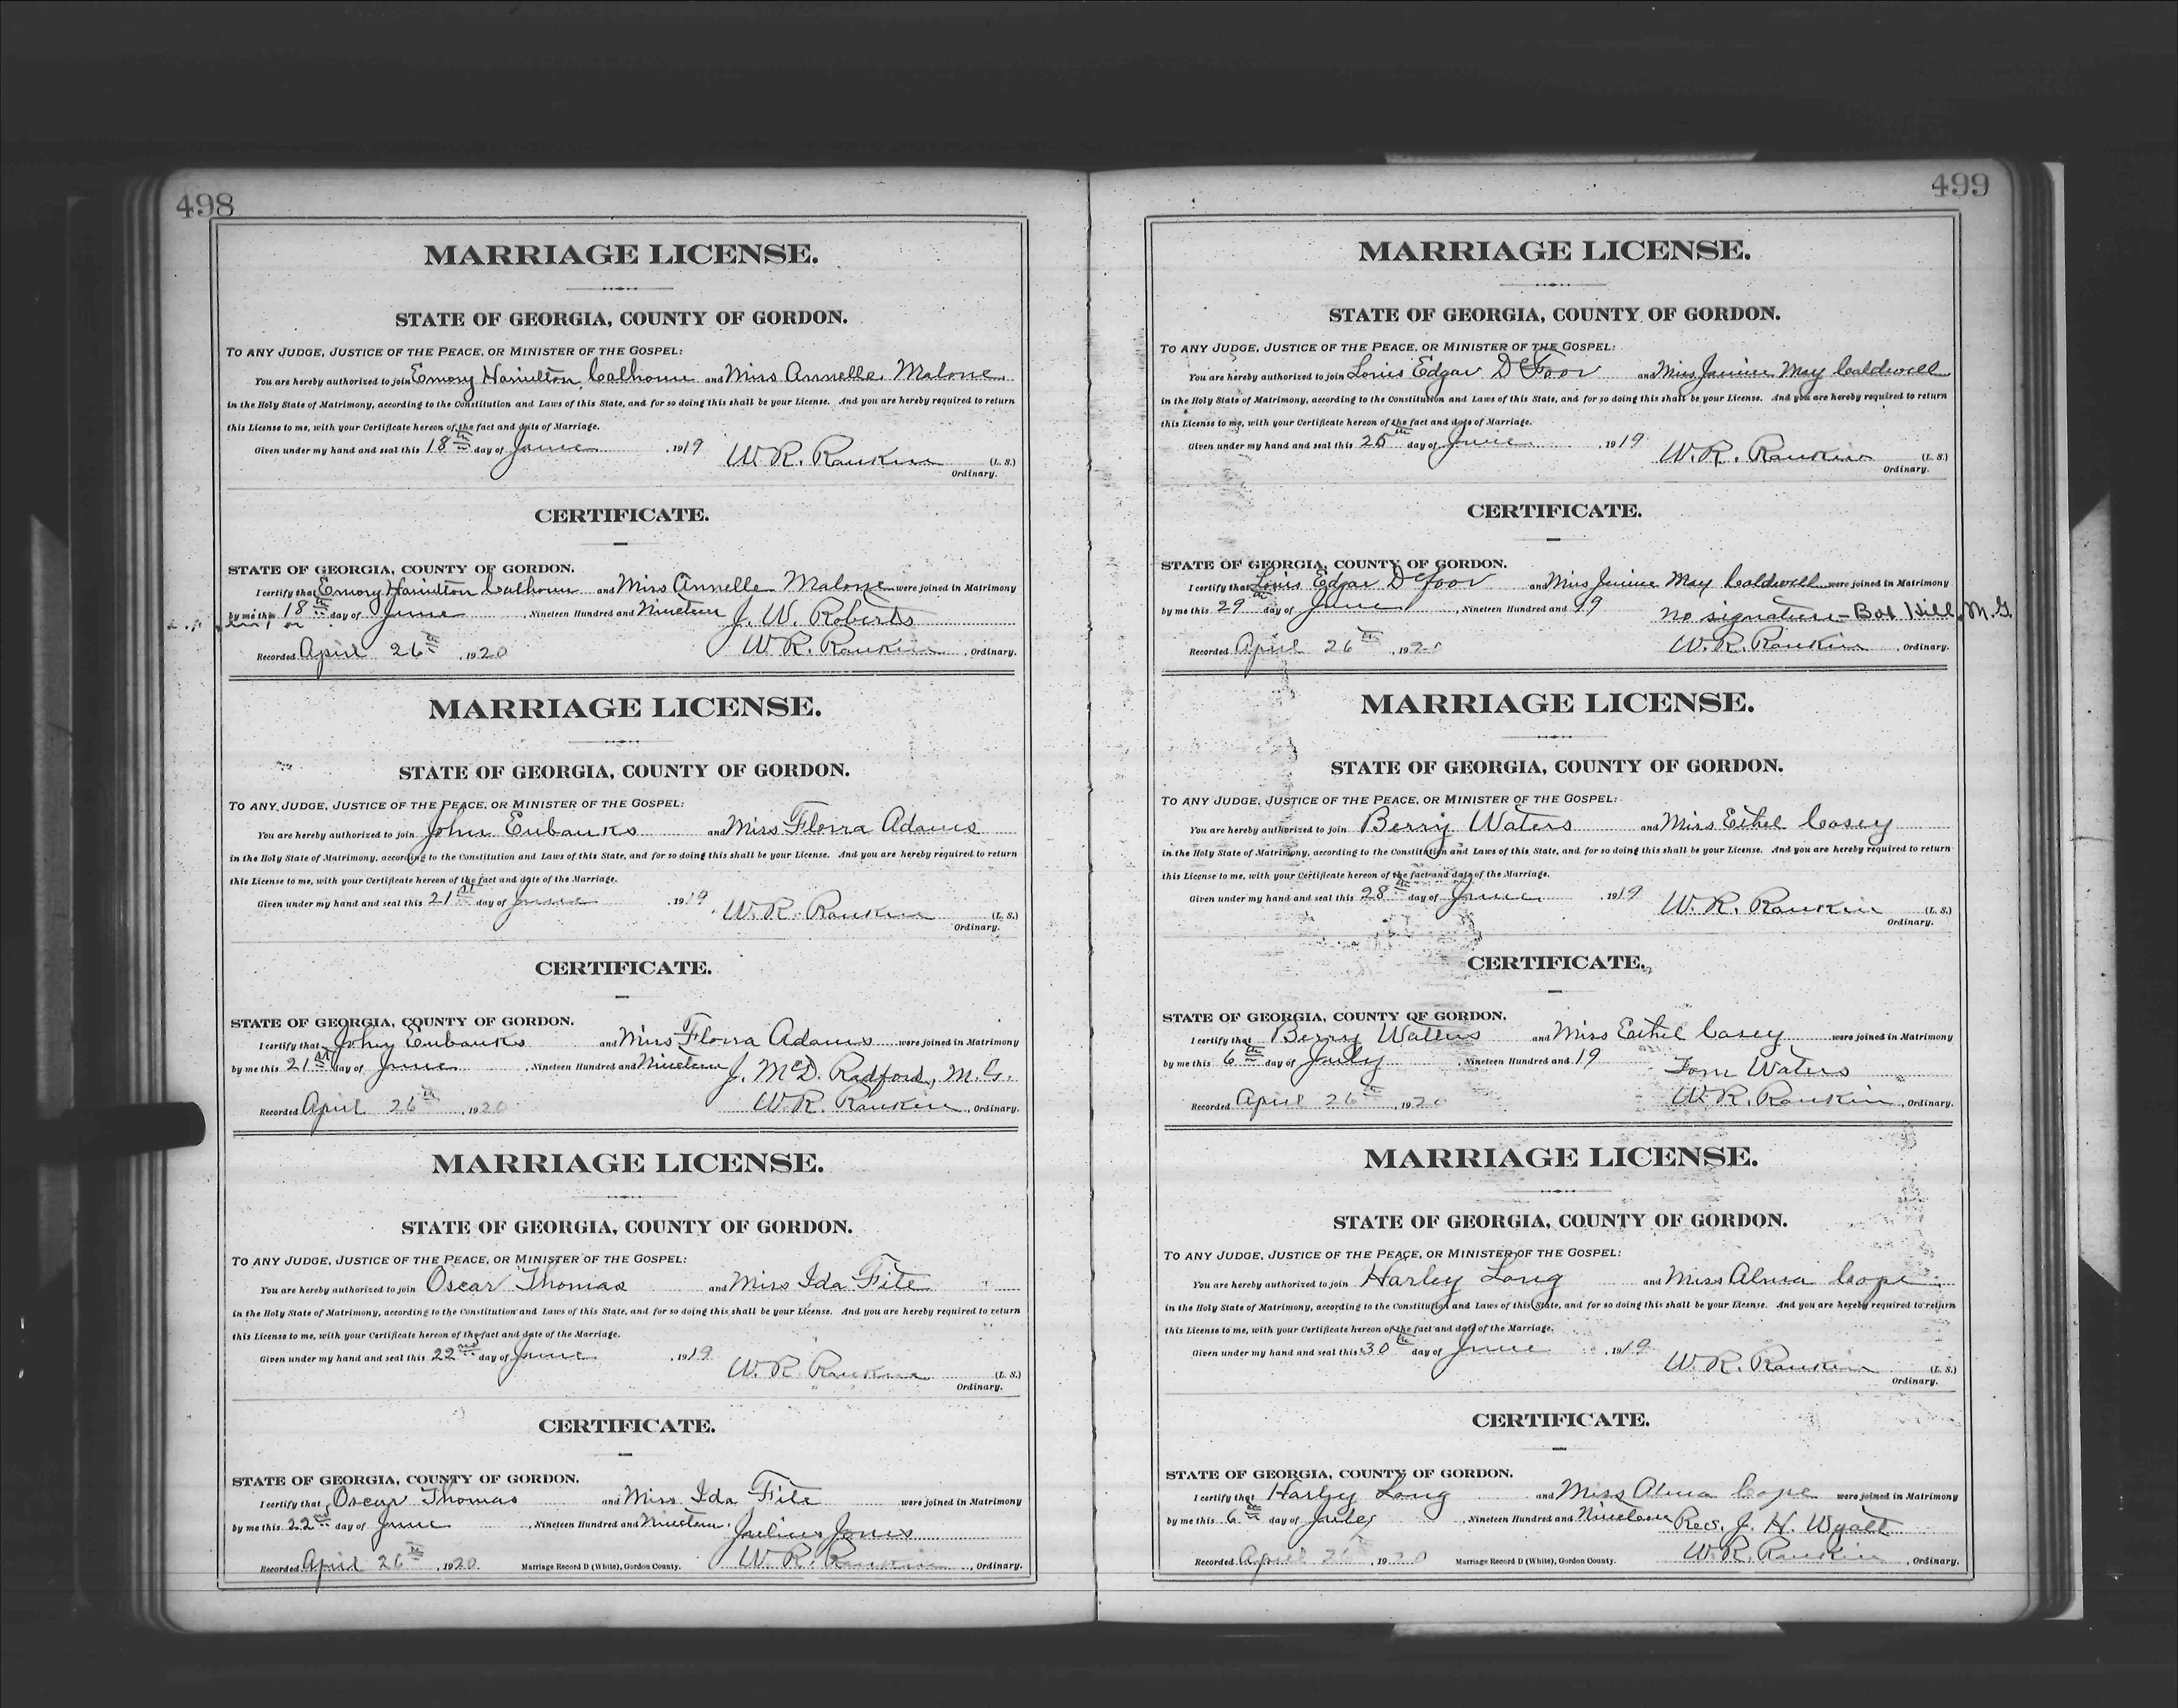 498
MARRIAGE LICENSE.
STATE OF GEORGIA, COUNTY OF GORDON.
TO ANY JUDGE, JUSTICE OF THE PEACE, OR MINISTER OF THE GOSPEL:
You are hereby authorized to join Emory Hamilton Calhoun and Miss Annelle Malone
in the Holy State of Matrimony, according to the Constitution and Laws of this State, and for so doing this shall be your License. And you are hereby required to return
this License to me, with your Certificate hereon of the fact and date of Marriage.
Given under my hand and seal this 18th day of June 1919 W. R. Rankin (L. S.)
Ordinary.
CERTIFICATE.
STATE OF GEORGIA, COUNTY OF GORDON.
I certify that Emory Hamilton Calhoun and Miss Annelle Malone were joined in Matrimony
by me this 18th day of June, Nineteen Hundred and Nineteen J. W. Roberts
Recorded April 26th, 1920 W. R. Rankin, Ordinary.
MARRIAGE LICENSE.
STATE OF GEORGIA, COUNTY OF GORDON.
TO ANY JUDGE, JUSTICE OF THE PEACE, OR MINISTER OF THE GOSPEL:
You are hereby authorized to join John Eubanks and Miss Flora Adams
in the Holy State of Matrimony, according to the Constitution and Laws of this State, and for so doing this shall be your License. And you are hereby required to return
this License to me, with your Certificate hereon of the fact and date of the Marriage.
Given under my hand and seal this 21st day of June 1919. W. R. Rankin (L. S.)
Ordinary.
CERTIFICATE.
STATE OF GEORGIA, COUNTY OF GORDON.
I certify that John Eubanks and Miss Flora Adams were joined in Matrimony
by me this 21st day of June, Nineteen Hundred and Nineteen J. McD. Radford, M. G.
Recorded April 26th, 1920 W. R. Rankin, Ordinary.
MARRIAGE LICENSE.
STATE OF GEORGIA, COUNTY OF GORDON.
TO ANY JUDGE, JUSTICE OF THE PEACE, OR MINISTER OF THE GOSPEL:
You are hereby authorized to join Oscar Thomas and Miss Ida Fite
in the Holy State of Matrimony, according to the Constitution and Laws of this State, and for so doing this shall be your License. And you are hereby required to return
this License to me, with your Certificate hereon of the fact and date of the Marriage.
Given under my hand and seal this 22nd day of June, 1919 W. R. Rankin (L. S.)
Ordinary.
CERTIFICATE.
STATE OF GEORGIA, COUNTY OF GORDON.
I certify that Oscar Thomas and Miss Ida Fite were joined in Matrimony
by me this 22nd day of June, Nineteen Hundred and Nineteen. Julius Jones
Recorded April 26th, 1920 Marriage Record D (White), Gordon County. W. R. Rankin, Ordinary.
499
MARRIAGE LICENSE.
STATE OF GEORGIA, COUNTY OF GORDON.
TO ANY JUDGE, JUSTICE OF THE PEACE, OR MINISTER OF THE GOSPEL:
You are hereby authorized to join Louis Edgar DeFoor and Miss May Caldwell
in the Holy State of Matrimony, according to the Constitution and Laws of this State, and for so doing this shall be your License. And you are hereby required to return
this License to me, with your Certificate hereon of the fact and date of Marriage.
Given under my hand and seal this day of June 1919 W. R. Rankin (L. S.)
Ordinary.
CERTIFICATE.
STATE OF GEORGIA, COUNTY OF GORDON.
I certify that Louis Edgar DeFoor and Miss May Caldwell were joined in Matrimony
by me this 29th day of June, Nineteen Hundred and 19 no signature - Bob Hill, M. G.
Recorded April 26th, 1920 W. R. Rankin, Ordinary.
MARRIAGE LICENSE.
STATE OF GEORGIA, COUNTY OF GORDON.
TO ANY JUDGE, JUSTICE OF THE PEACE, OR MINISTER OF THE GOSPEL:
You are hereby authorized to join Berry Waters and Miss Ethel Casey
in the Holy State of Matrimony, according to the Constitution and Laws of this State, and for so doing this shall be your License. And you are hereby required to return
this License to me, with your Certificate hereon of the fact and date of the Marriage.
Given under my hand and seal this 28th day of June 1919 W. R. Rankin (L. S.)
Ordinary.
CERTIFICATE.
STATE OF GEORGIA, COUNTY OF GORDON.
I certify that Berry Waters and Miss Ethel Casey were joined in Matrimony
by me this 6th day of July, Nineteen Hundred and 19 Tom Waters
Recorded April 26th, 1920 W. R. Rankin, Ordinary.
MARRIAGE LICENSE.
STATE OF GEORGIA, COUNTY OF GORDON.
TO ANY JUDGE, JUSTICE OF THE PEACE, OR MINISTER OF THE GOSPEL:
You are hereby authorized to join Harley Long and Miss Alma Cope
in the Holy State of Matrimony, according to the Constitution and Laws of this State, and for so doing this shall be your License. And you are hereby required to return
this License to me, with your Certificate hereon of the fact and date of the Marriage.
Given under my hand and seal this 30th day of June, 1919 W. R. Rankin (L. S.)
Ordinary.
CERTIFICATE.
STATE OF GEORGIA, COUNTY OF GORDON.
I certify that Harley Long and Miss Alma Cope were joined in Matrimony
by me this 6th day of July, Nineteen Hundred and Nineteen Rev. J. H. Wyatt
Recorded April 26th, 1920 Marriage Record D (White), Gordon County. W. R. Rankin, Ordinary.